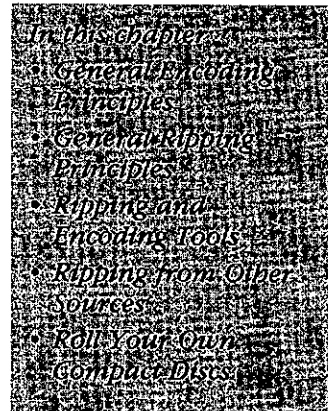 In this chapter:
• General Encoding
Principles
• General Ripping
Principles
• Ripping and
Encoding Tools
• Ripping from Other
Sources
• Roll Your Own
Compact Discs